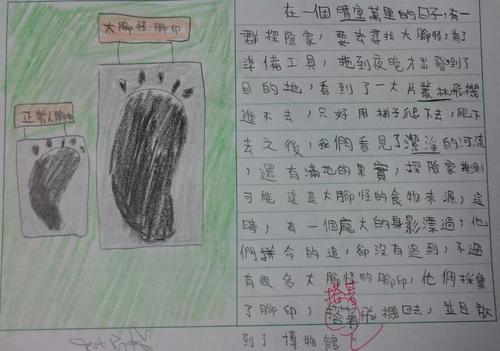 大腳怪腳印
正常人腳印
在一個晴空萬里的日子,有一
群探險家,要去尋找大腳怪,為了
準備工具,拖到夜晚才出發到了
目的地,看到了一大片叢林飛機
進不去,只好用梯子爬下去,爬下
去之後,我們看見了潔淨的河流
,還有滿地的果實,探險家推測
可能這是大腳怪的食物來源,這
時,有一個龐大的身影漂過,他
們拼命的追,卻沒有追到,不過
有很多大腳怪的腳印,他們採集
搭著
了腳印,飛機回去,並且放
到了博物館。